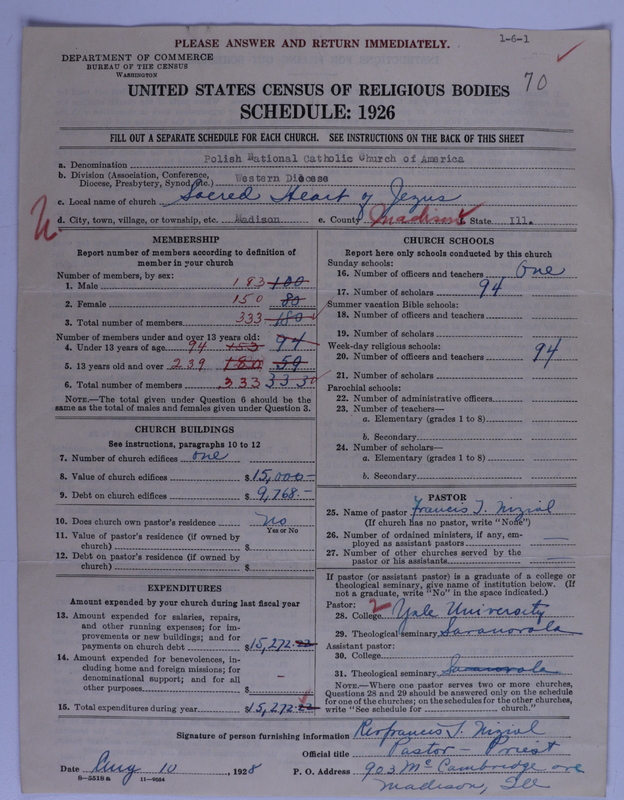 PLEASE ANSWER AND RETURN IMMEDIATELY.
1-6-1
DEPARTMENT OF COMMERCE
BUREAU OF THE CENSUS
WASHINGTON
70
UNITED STATES CENSUS OF RELIGIOUS BODIES
SCHEDULE: 1926
FILL OUT A SEPARATE SCHEDULE FOR EACH CHURCH. SEE INSTRUCTIONS ON THE BACK OF THIS SHEET
a. Denomination Polish National Catholic Church of America
b. Division (Association, Conference, Diocese, Presbytery, Synod, etc.) Western Diocese
c. Local name of church Sacred Heart of Jezus
d. City, town, village, or township, etc. Madison e. County Madison f. State Ill.
MEMBERSHIP
Report number of members according to definition of
member in your church
Number of members, by sex:
1. Male 183 100
2. Female 150 80
3. Total number of members 333 180
Number of members under and over 13 years old:
4. Under 13 years of age 94 153 94
5. 13 years old and over 239 180 59
6. Total number of members 333 333
NOTE.—The total given under Question 6 should be the
same as the total of males and females given under Question 3.
CHURCH BUILDINGS
See instructions, paragraphs 10 to 12
7. Number of church edifices one
8. Value of church edifices $15,000.—
9. Debt on church edifices $9,768.—
10. Does church own pastor's residence No
Yes or No
11. Value of pastor's residence (if owned by
church) $
12. Debt on pastor's residence (if owned by
church) $
EXPENDITURES
Amount expended by your church during last fiscal year
13. Amount expended for salaries, repairs,
and other running expenses; for im-
provements or new buildings; and for
payments on church debt $15,272.22
14. Amount expended for benevolences, in-
cluding home and foreign missions; for
denominational support; and for all
other purposes $ —
15. Total expenditures during year $15,272.22
CHURCH SCHOOLS
Report here only schools conducted by this church
Sunday schools:
16. Number of officers and teachers One
17. Number of scholars 94
Summer vacation Bible schools:
18. Number of officers and teachers
19. Number of scholars
Week-day religious schools:
20. Number of officers and teachers 94
21. Number of scholars
Parochial schools:
22. Number of administrative officers
23. Number of teachers—
a. Elementary (grades 1 to 8)
b. Secondary
24. Number of scholars—
a. Elementary (grades 1 to 8)
b. Secondary
PASTOR
25. Name of pastor Francis J. Nizial
(If church has no pastor, write "None")
26. Number of ordained ministers, if any, em-
ployed as assistant pastors —
27. Number of other churches served by the
pastor or his assistants —
If pastor (or assistant pastor) is a graduate of a college or
theological seminary, give name of institution below. (If
not a graduate, write "No" in the space indicated.)
Pastor:
28. College 2 Yale University
29. Theological seminary Savanorola
Assistant pastor:
30. College
31. Theological seminary Savanorola
NOTE.—Where one pastor serves two or more churches,
Questions 28 and 29 should be answered only on the schedule
for one of the churches; on the schedules for the other churches,
write "See schedule for church."
Signature of person furnishing information Rev Francis J. Nizial
Official title Pastor - Priest
Date Aug 10, 1928 P. O. Address 903 Mc Cambridge ave
8—5518 a 11—9054 Madison, Ill